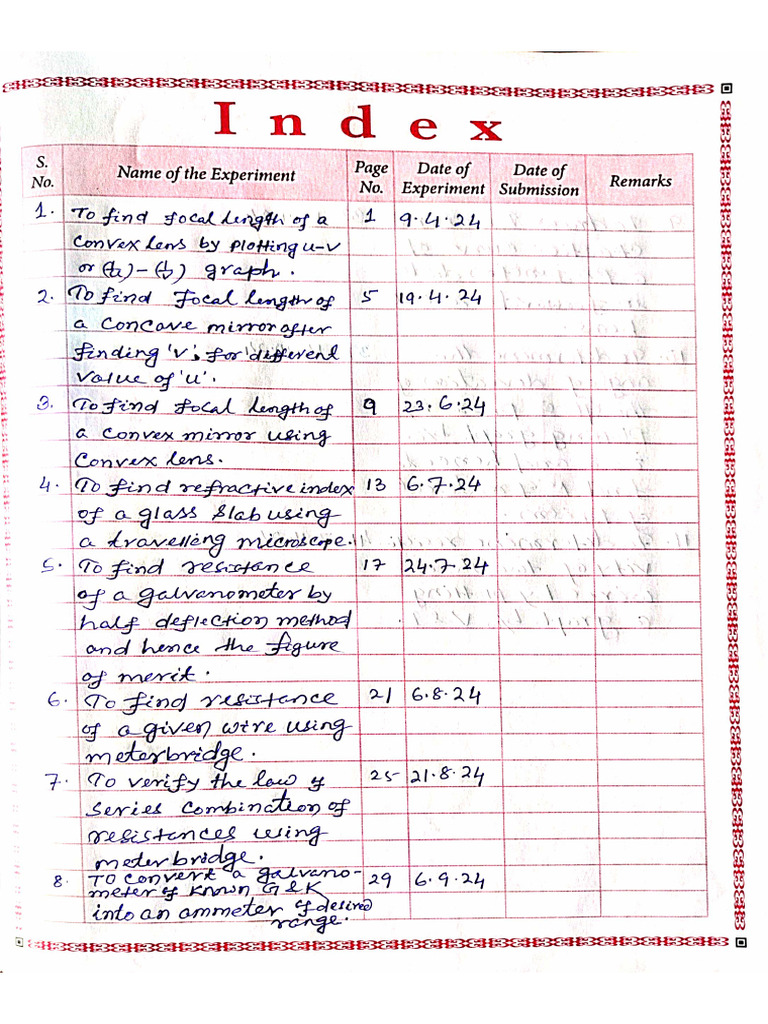 Index
S. No. Name of the Experiment Page No. Date of Experiment Date of Submission Remarks
1. To find focal length of a 1 9.4.24
convex lens by plotting u-v
or (1/u)-(1/v) graph.
2. To find focal length of 5 19.4.24
a concave mirror after
finding 'v', for different
value of 'u'.
3. To find focal length of 9 23.6.24
a convex mirror using
convex lens.
4. To find refractive index 13 6.7.24
of a glass slab using
a travelling microscope.
5. To find resistance 17 24.7.24
of a galvanometer by
half deflection method
and hence the figure
of merit.
6. To find resistance 21 6.8.24
of a given wire using
meterbridge.
7. To verify the law of 25 21.8.24
series combination of
resistances using
meterbridge.
8. To convert a galvano- 29 6.9.24
meter of known G & K
into an ammeter of desired
range.